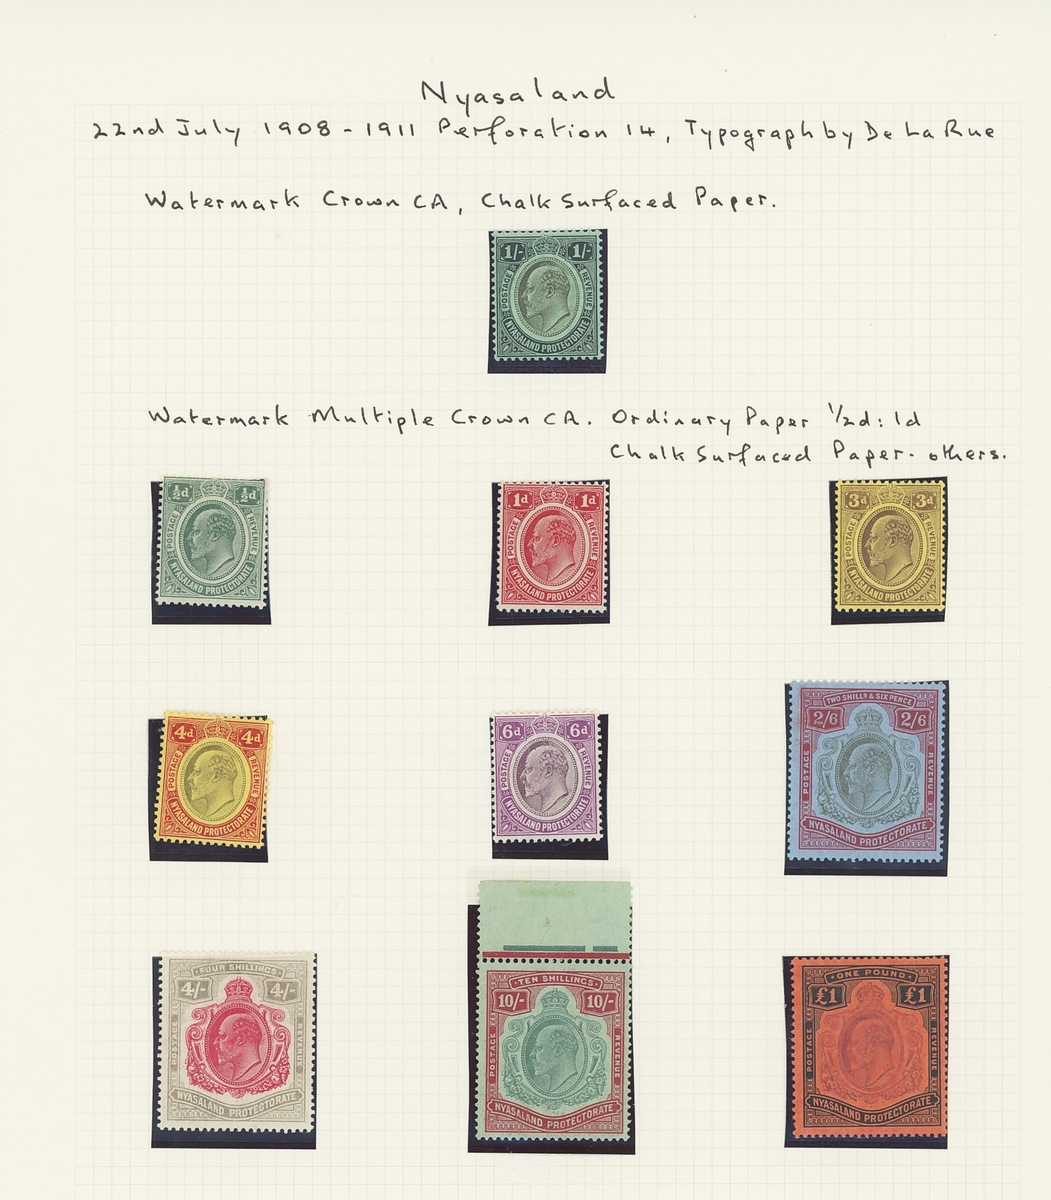 Nyasaland
22nd July 1908 - 1911 Perforation 14, Typograph by De La Rue
Watermark Crown CA, Chalk Surfaced Paper.
1/- 1/-
POSTAGE REVENUE
NYASALAND PROTECTORATE
Watermark Multiple Crown CA. Ordinary Paper ½d: 1d
Chalk Surfaced Paper - others.
½d ½d
POSTAGE REVENUE
NYASALAND PROTECTORATE
1d 1d
POSTAGE REVENUE
NYASALAND PROTECTORATE
3d 3d
POSTAGE REVENUE
NYASALAND PROTECTORATE
4d 4d
POSTAGE REVENUE
NYASALAND PROTECTORATE
6d 6d
POSTAGE REVENUE
NYASALAND PROTECTORATE
TWO SHILLS & SIX PENCE
2/6 2/6
POSTAGE REVENUE
NYASALAND PROTECTORATE
FOUR SHILLINGS
4/- 4/-
POSTAGE REVENUE
NYASALAND PROTECTORATE
TEN SHILLINGS
10/- 10/-
POSTAGE REVENUE
NYASALAND PROTECTORATE
ONE POUND
£1 £1
POSTAGE REVENUE
NYASALAND PROTECTORATE